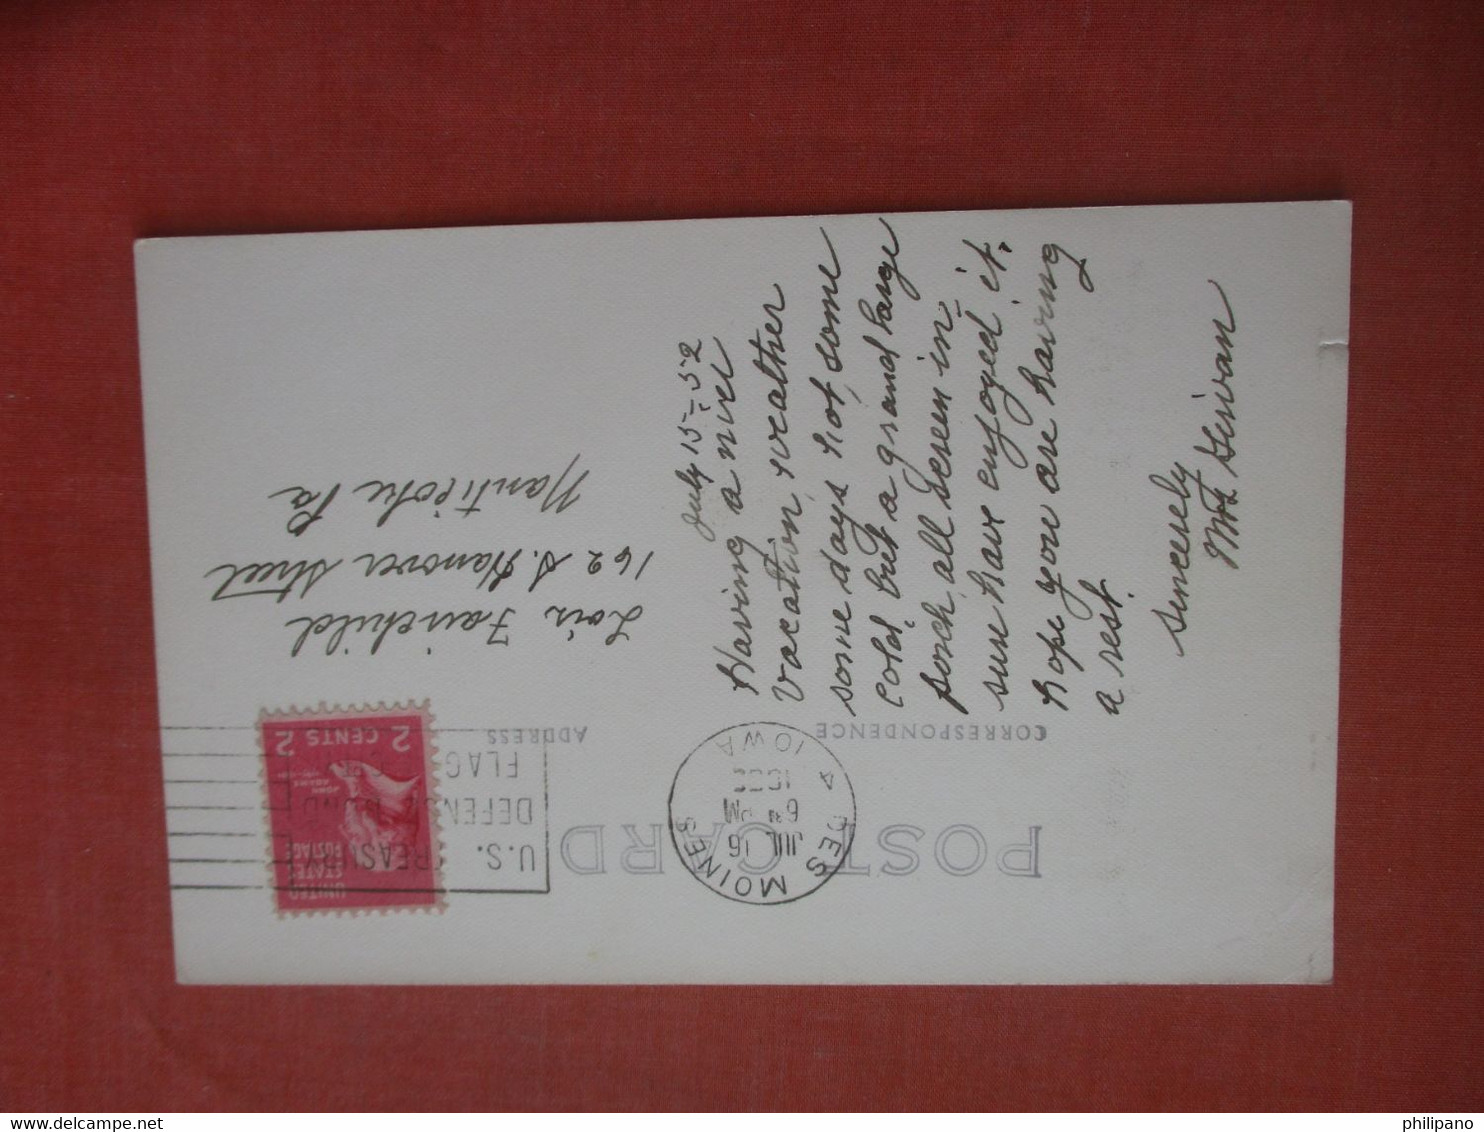 POST CARD
CORRESPONDENCE
ADDRESS
DES MOINES
JUL 16
6 PM
1952
4 IOWA
U.S. TREAS
DEFENSE BOND
FLAG
UNITED
STATES
POSTAGE
JOHN
ADAMS
2 CENTS 2
July 15-52
Having a nice
vacation, weather
some days hot, some
cold, but a grand large
porch, all screen in
sure have enjoyed it.
hope you are having
a rest.
Sincerely
Mrs Girvan
Lois Fairchild
162 S. Hanover Street
Nanticoke Pa
philipano